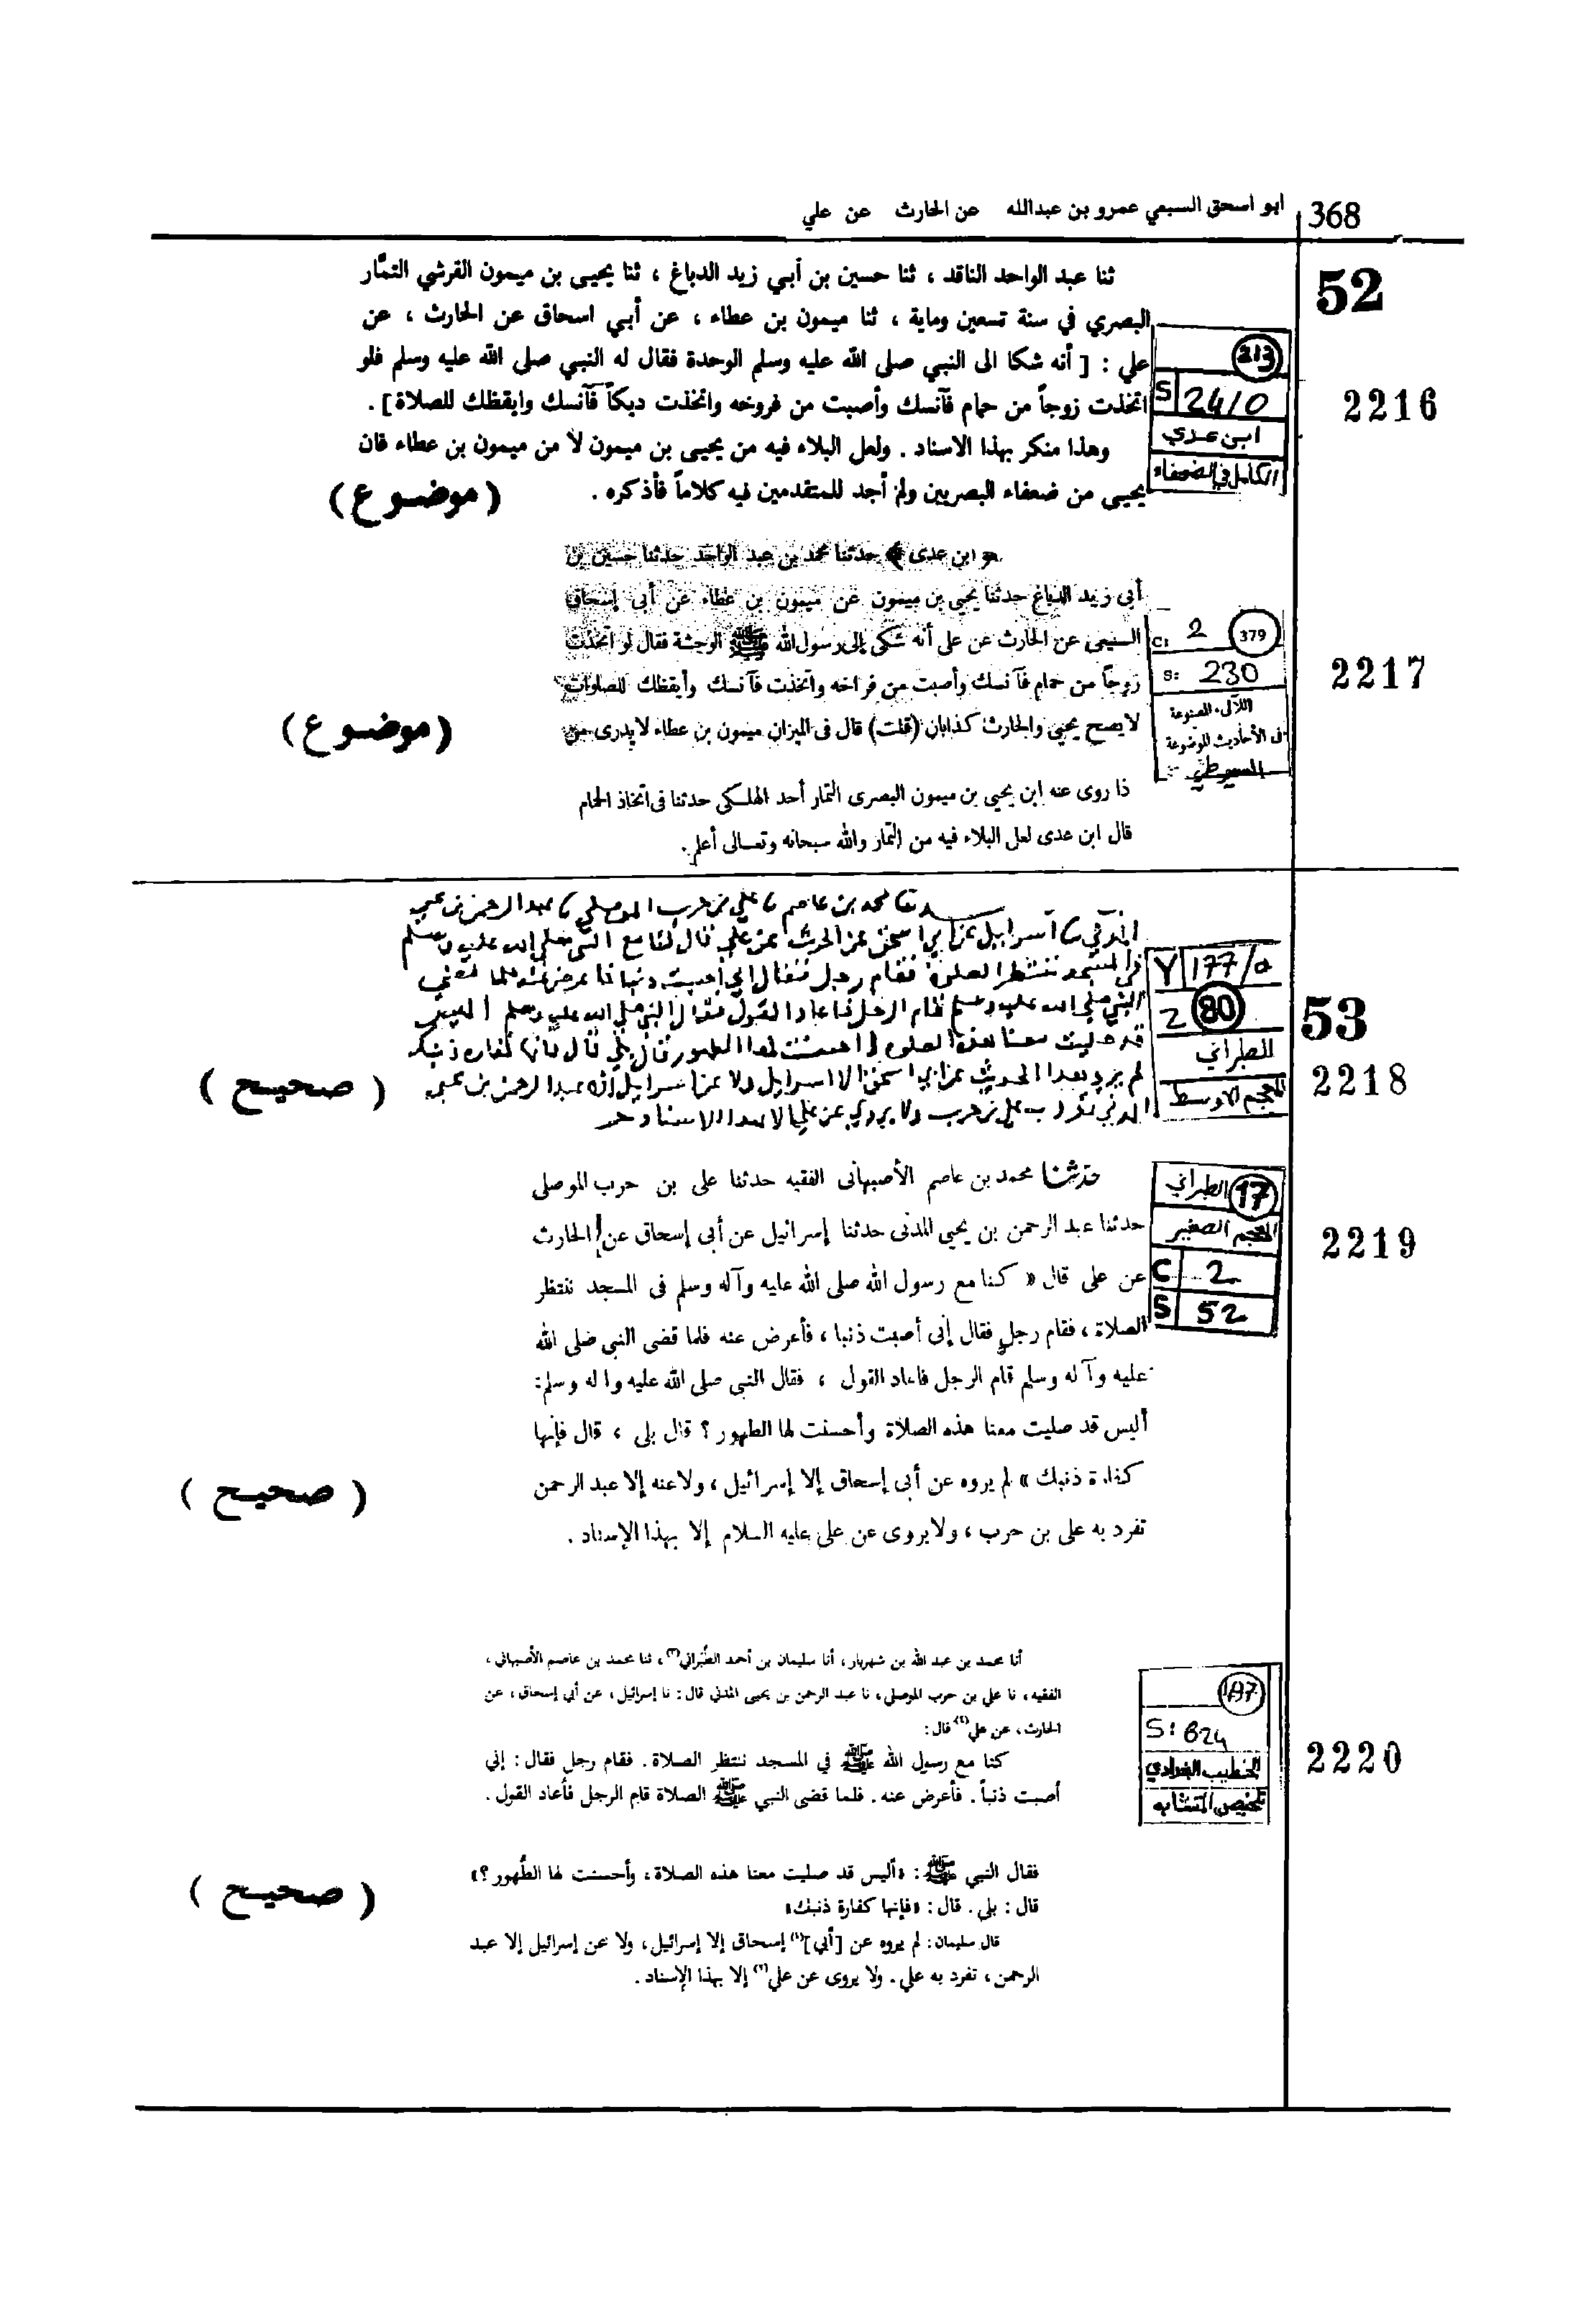 368
ابو اسحق السبعي عمرو بن عبدالله عن الحارث عن علي
52
ثنا عبد الواحد الناقد ، ثنا حسين بن أبي زيد الدباغ ، ثنا يحيى بن ميمون القرشي التمّار
البصري في سنة تسعين وماية ، ثنا ميمون بن عطاء ، عن أبي اسحاق عن الحارث ، عن
علي : [ أنه شكا الى النبي صلى الله عليه وسلم الوحدة فقال له النبي صلى الله عليه وسلم فلو
اتخذت زوجاً من حمام فآنسك وأصبت من فروخه واتخذت ديكاً فآنسك وايقظك للصلاة ] .
وهذا منكر بهذا الاسناد . ولعل البلاء فيه من يحيى بن ميمون لا من ميمون بن عطاء فان
يحيى من ضعفاء البصريين ولم أجد للمتقدمين فيه كلاماً فأذكره .
( موضوع )
213
S 2410
ابن عدي
الكامل في الضعفاء
2216
ابن عدى ﴾ حدثنا محمد بن عبد الواحد حدثنا حسين بن
أبى زيد الدباغ حدثنا يحيى بن ميمون عن ميمون بن عطاء عن أبى إسحاق
السبيعى عن الحارث عن على أنه شكى إلى رسول الله ﷺ الوحشة فقال لو اتخذت
زوجاً من حمام فآنسك وأصبت من فراخه واتخذت فآنسك وأيقظك للصلوات
لا يصح يحيى والحارث كذابان (قلت) قال فى الميزان ميمون بن عطاء لا يدرى من
ذا روى عنه ابن يحيى بن ميمون البصرى التمار أحد الهلكى حدثنا فى اتخاذ الحمام
قال ابن عدى لعل البلاء فيه من التمار والله سبحانه وتعالى أعلم.
( موضوع )
379
C: 2
S: 230
اللآلىء المصنوعة
فى الأحاديث الموضوعة
السيوطي
2217
53
محمد بن عاصم علي بن حرب الموصلي عبد الرحمن بن يحيى
المدني اسرائيل عن ابي اسحق عن الحرث عن علي قال كنا مع النبي صلى الله عليه وسلم
في المسجد ننتظر الصلوة فقام رجل فقال اني اصبت ذنبا فاعرض عنه فلما قضى
النبي صلى الله عليه وسلم قام الرجل فاعاد القول فقال النبي صلى الله عليه وسلم اليس
قد صليت معنا هذه الصلوة واحسنت لها الطهور قال بلى قال فانها كفارة ذنبك
لم يرو هذا الحديث عن ابي اسحق الا اسرائيل ولا عن اسرائيل الا عبد الرحمن بن يحيى
المدني تفرد به علي بن حرب ولا يروي عن علي الا بهذا الاسناد
( صحيح )
Y 177/a
80
2
الطبراني
المعجم الاوسط
2218
حدثنا محمد بن عاصم الأصبهانى الفقيه حدثنا على بن حرب الموصلى
حدثنا عبد الرحمن بن يحيى المدنى حدثنا إسرائيل عن أبى إسحاق عن الحارث
عن على قال « كنا مع رسول الله صلى الله عليه وآله وسلم فى المسجد ننتظر
الصلاة ، فقام رجل فقال إنى أصبت ذنبا ، فأعرض عنه فلما قضى النبى صلى الله
عليه وآله وسلم قام الرجل فاعاد القول ، فقال النبى صلى الله عليه واله وسلم:
أليس قد صليت معنا هذه الصلاة وأحسنت لها الطهور ؟ قال بلى ، قال فإنها
كفارة ذنبك » لم يروه عن أبى إسحاق إلا إسرائيل ، ولا عنه إلا عبد الرحمن
تفرد به على بن حرب ، ولا يروى عن على عليه السلام إلا بهذا الإسناد .
( صحيح )
17
الطبراني
المعجم الصغير
C 2
S 52
2219
أنا محمد بن عبد الله بن شهريار، أنا سليمان بن أحمد الطَّبَراني(٣)، ثنا محمد بن عاصم الأصبهاني ،
الفقيه ، نا علي بن حرب الموصلي، نا عبد الرحمن بن يحيى المدني قال: نا إسرائيل، عن أبي إسحاق، عن
الحارث، عن علي(٤) قال:
كنا مع رسول الله ﷺ في المسجد ننتظر الصلاة . فقام رجل فقال : إني
أصبت ذنباً . فأعرض عنه . فلما قضى النبي ﷺ الصلاة قام الرجل فأعاد القول .
فقال النبي ﷺ : «أليس قد صليت معنا هذه الصلاة، وأحسنت لها الطَّهور؟»
قال : بلى . قال : «فإنها كفارة ذنبك»
قال سليمان: لم يروه عن [أبي](١) إسحاق إلا إسرائيل، ولا عن إسرائيل إلا عبد
الرحمن، تفرد به علي . ولا يروى عن علي(٢) إلا بهذا الإسناد .
( صحيح )
197
S: 624
الخطيب البغدادي
تلخيص المتشابه
2220